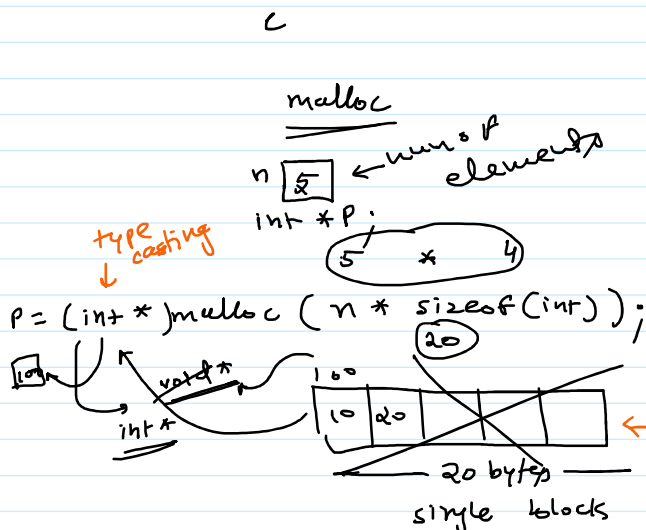 c
malloc
n 5 num of elements
int *P;
5 * 4
type casting
P = (int *)malloc ( n * sizeof(int) );
20
100 void * 100
10 20
int *
20 bytes
single blocks